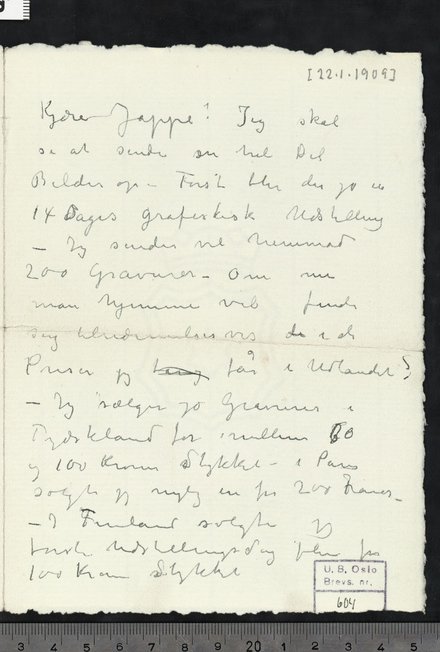 [22.1.1909]
Kjære Jappe! Jeg skal
se at sende en hel Del
Billeder op – Først blir der jo en
14 Dages grafeskisk Udstilling
– Jeg sender vel henimod
200 Gravurer – Om nu
man hjemme vil finde
sig tilnærmelsesvis i de
Priser jeg får i Udlandet?
– Jeg sælger jo Gravurer i
Tydskland for imellem 60
og 100 Kroner Stykket – i Paris
solgte jeg nylig en for 200 Francs –
– I Finland solgte jeg
første Udstillingsdag flere for
100 Kroner Stykket
U. B. Oslo
Brevs. nr.
604
3 4 5 6 7 8 9 20 1 2 3 4 5